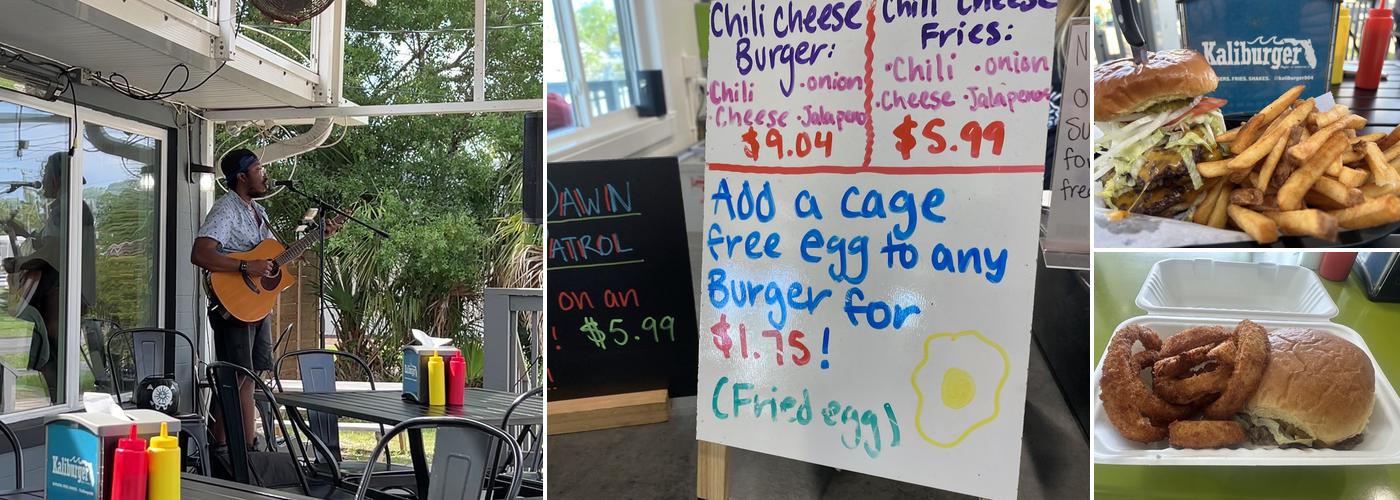 Kaliburger
Chili Cheese
Burger:
·Chili ·onion
·Cheese ·Jalapeno
$9.04
Chili Cheese
Fries:
·Chili ·onion
·Cheese ·Jalapenos
$5.99
Add a cage
free egg to any
Burger for
$1.75!
(Fried egg)
DAWN
PATROL
on an
! $5.99
!
N
O
Su
for
free
Kaliburger
BURGERS. FRIES. SHAKES. @kaliburger904